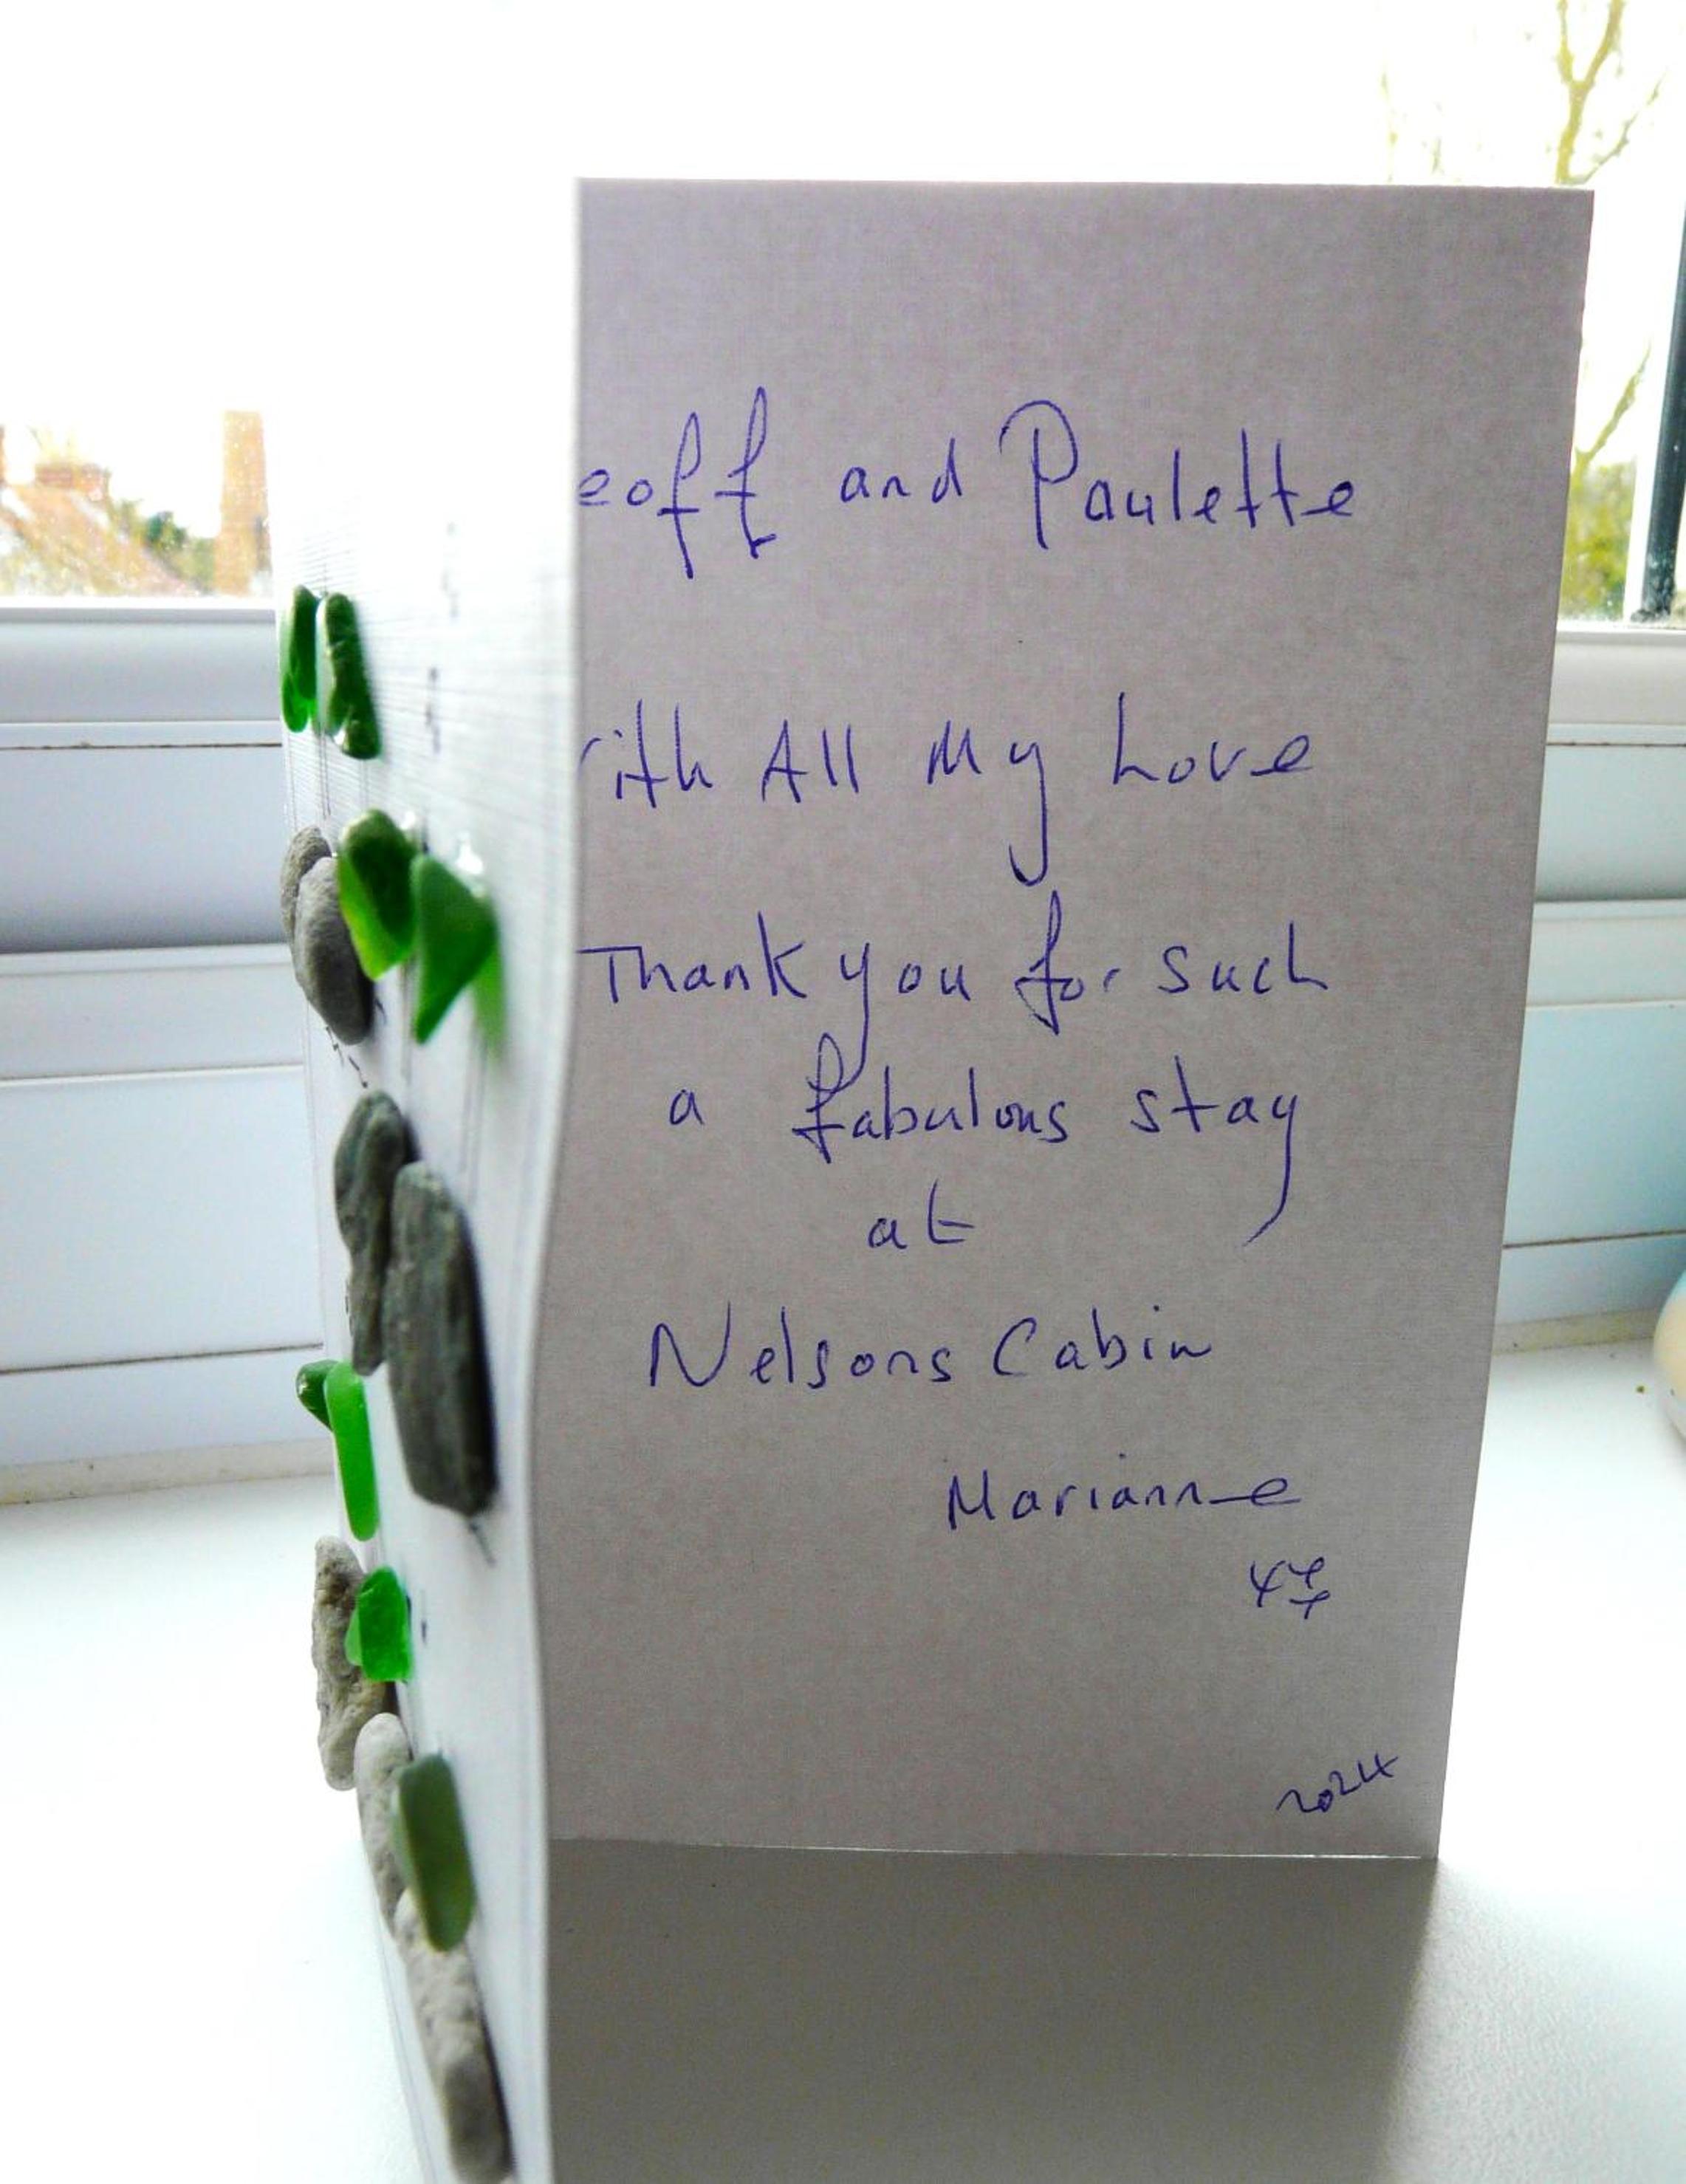 eoff and Paulette
ith All My Love
Thank you for such
a fabulous stay
at
Nelsons Cabin
Marianne
2024